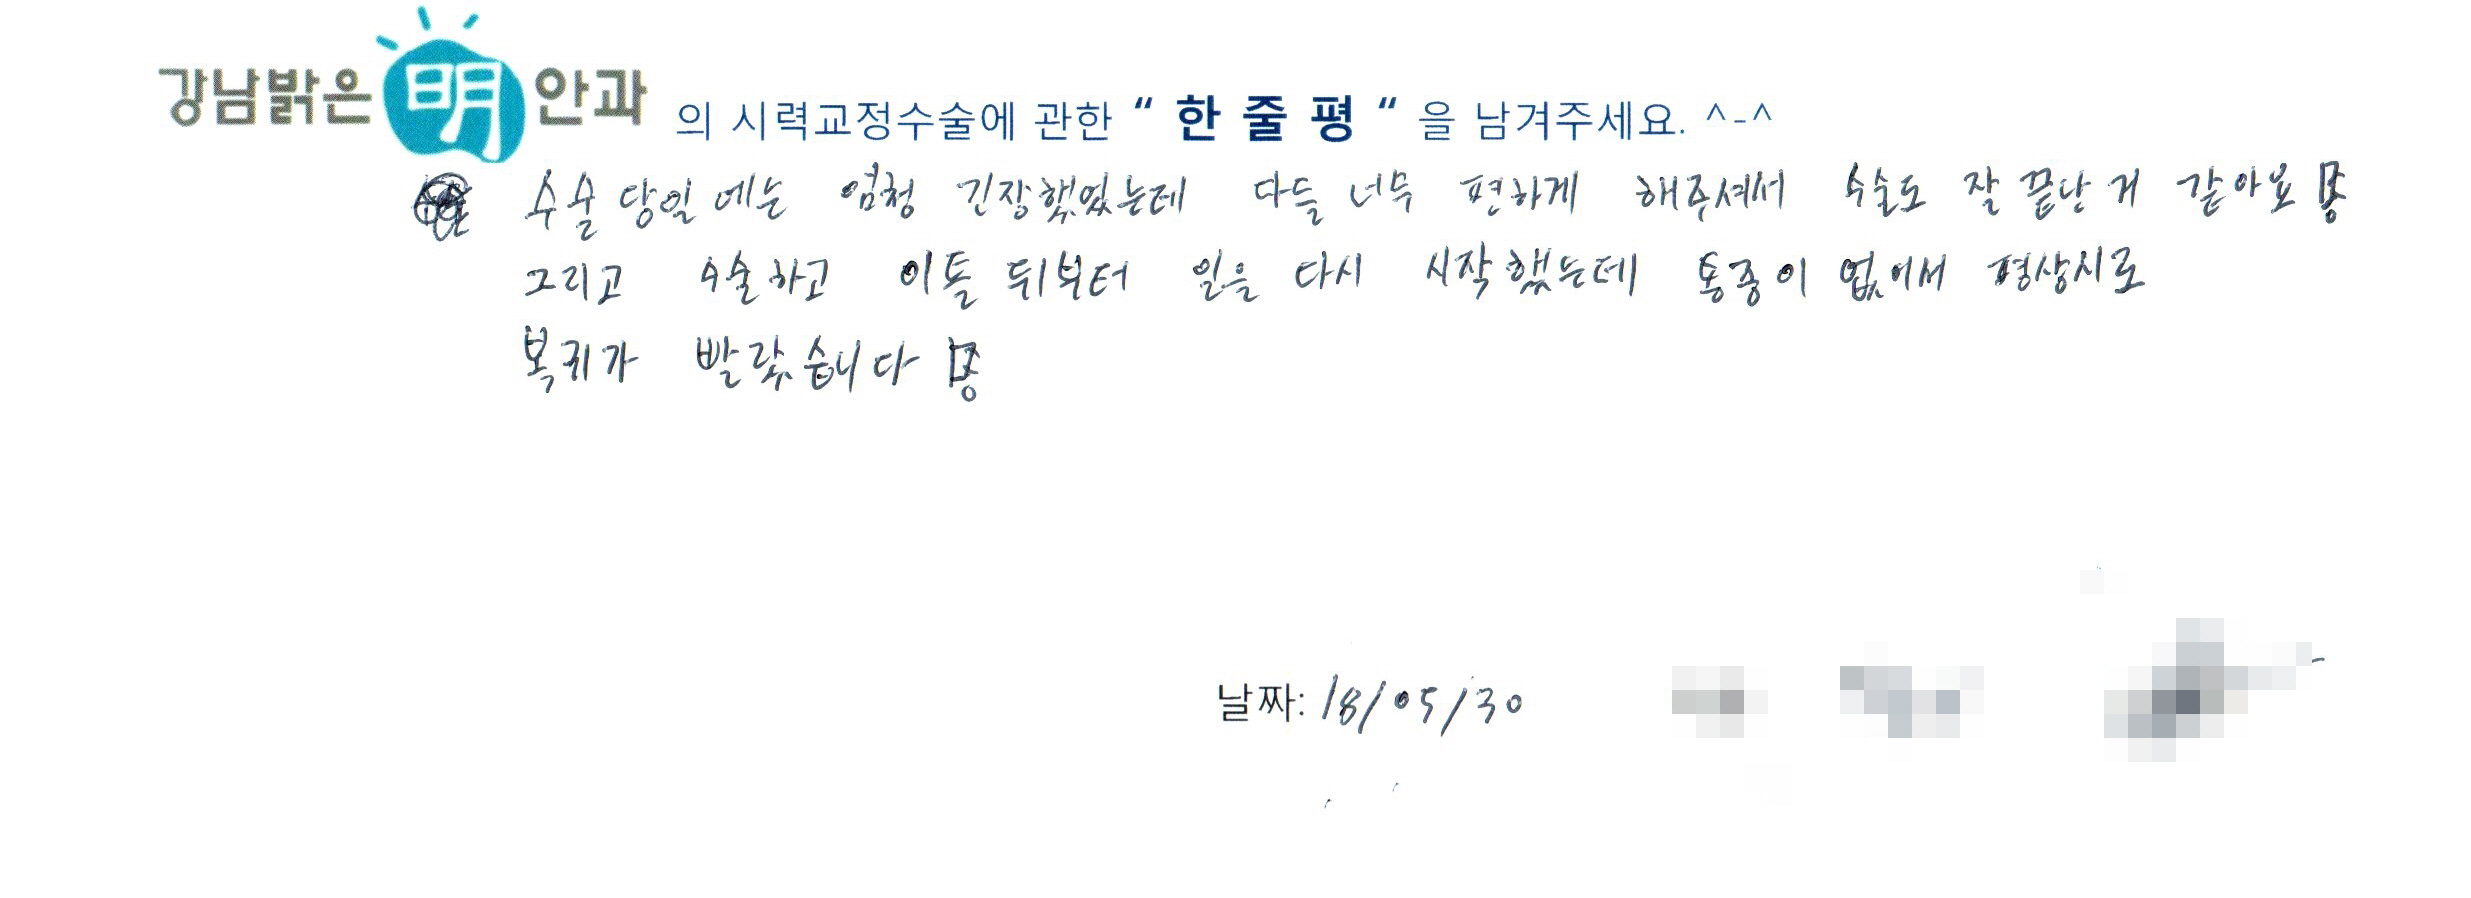 강남밝은 明 안과 의 시력교정수술에 관한 “ 한 줄 평 “ 을 남겨주세요. ^-^
수술 당일에는 엄청 긴장했었는데 다들 너무 편하게 해주셔서 수술도 잘 끝난 거 같아요
그리고 수술하고 이틀 뒤부터 일을 다시 시작했는데 통증이 없어서 평상시로
복귀가 빨랐습니다
날짜: 18/05/30